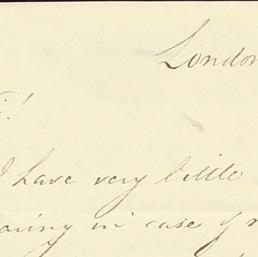 London
!
I have very little
in case of